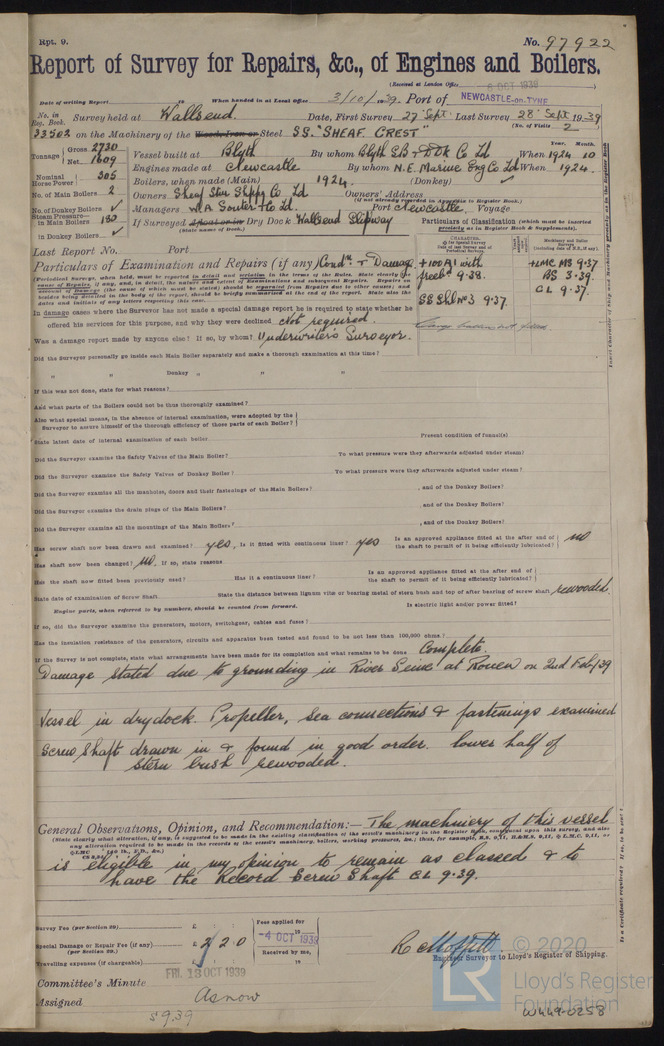 Rpt. 9.
No. 97922
Report of Survey for Repairs, &c., of Engines and Boilers.
(Received at London Office 6 OCT 1939
Date of writing Report 19 When handed in at Local Office 3/10/1939. Port of NEWCASTLE-ON-TYNE
No. in Reg. Book. Survey held at Wallsend. Date, First Survey 27 Sept. Last Survey 28 Sept 1939
(No. of Visits 2
33502 on the Machinery of the Wood, Iron or Steel S.S. "SHEAF CREST"
Tonnage Gross 2730 Net 1609 Vessel built at Blyth By whom Blyth S.B. & D.Dk Co Ld When 1924 10
Year. Month.
Nominal Horse Power 305 Engines made at Newcastle By whom N.E. Marine Eng Co Ld When 1924.
No. of Main Boilers 2 Boilers, when made (Main) 1924. (Donkey) ✓
No. of Donkey Boilers ✓ Owners Sheaf Stm Shippg Co Ld Owners' Address
(if not already recorded in Appendix to Register Book.)
Steam Pressure in Main Boilers 180 Managers W.A. Souter & Co Ld. Port Newcastle. Voyage
in Donkey Boilers ✓ If Surveyed Afloat or in Dry Dock Wallsend Slipway
(State name of Dock.)
Particulars of Classification (which must be inserted precisely as in Register Book & Supplements).
Last Report No. Port
+100A1 with freebd 9.38.
SS Shl No3 9.37.
+LMC MS 9.37
BS 3.39
CL 9.37.
Particulars of Examination and Repairs (if any) Condn. & Damage
In damage cases where the Surveyor has not made a special damage report he is required to state whether he
offered his services for this purpose, and why they were declined Not required.
Was a damage report made by anyone else? If so, by whom? Underwriter's Surveyor.
Did the Surveyor personally go inside each Main Boiler separately and make a thorough examination at this time?
" " Donkey " " "
If this was not done, state for what reasons?
And what parts of the Boilers could not be thoroughly examined?
Also what special means, in the absence of internal examination, were adopted by the
Surveyor to assure himself of the thorough efficiency of those parts of each Boiler?
State latest date of internal examination of each boiler Present condition of funnel(s)
Did the Surveyor examine the Safety Valves of the Main Boiler? To what pressure were they afterwards adjusted under steam?
Did the Surveyor examine the Safety Valves of Donkey Boiler? To what pressure were they afterwards adjusted under steam?
Did the Surveyor examine all the manholes, doors and their fastenings of the Main Boilers? , and of the Donkey Boilers?
Did the Surveyor examine the drain plugs of the Main Boilers? , and of the Donkey Boilers?
Did the Surveyor examine all the mountings of the Main Boilers? , and of the Donkey Boilers?
Has screw shaft now been drawn and examined? yes. Is it fitted with continuous liner? yes Is an approved appliance fitted at the after end of the shaft to permit of it being efficiently lubricated? no
Has shaft now been changed? no. If so, state reasons
Has the shaft now fitted been previously used? Has it a continuous liner? Is an approved appliance fitted at the after end of the shaft to permit of it being efficiently lubricated?
State date of examination of Screw Shaft State the distance between lignum vitæ or bearing metal of stern bush and top of after bearing of screw shaft rewooded.
Engine parts, when referred to by numbers, should be counted from forward. Is electric light and/or power fitted?
If so, did the Surveyor examine the generators, motors, switchgear, cables and fuses?
Has the insulation resistance of the generators, circuits and apparatus been tested and found to be not less than 100,000 ohms?
If the Survey is not complete, state what arrangements have been made for its completion and what remains to be done Complete.
Damage stated due to grounding in River Seine at Rouen on 2nd Feb/39
Vessel in drydock. Propeller, sea connections & fastenings examined
Screw Shaft drawn in & found in good order. lower half of
stern bush rewooded.
General Observations, Opinion, and Recommendation:— The machinery of this vessel
is eligible in my opinion to remain as classed & to
have the Record Screw Shaft CL 9.39.
Survey Fee (per Section 29) £ : :
Fees applied for
-4 OCT 1939
Special Damage or Repair Fee (if any) £ 2 2 0
(per Section 29.)
Received by me,
Travelling expenses (if chargeable) £ : :
R C Moffett.
Engineer Surveyor to Lloyd's Register of Shipping.
FRI. 13 OCT 1939
Committee's Minute
Assigned As now
S 9.39
W449-0258
© 2020
LR
Lloyd's Register
Foundation